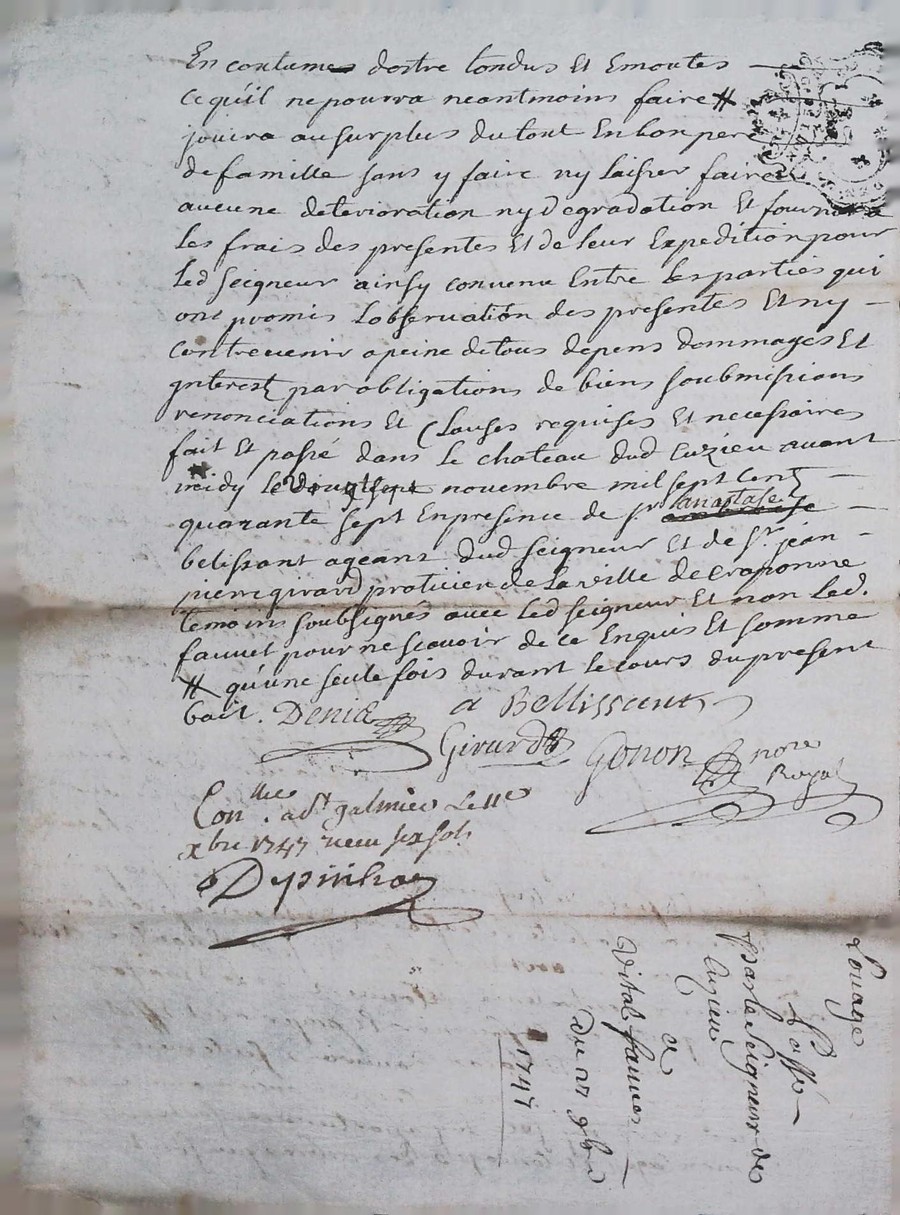 En coutumes destre tondus Et Emoutes
ce quil ne pourra neantmoins faire #
jouira au surplus du tout En bon pere
de famille sans y faire ny laisser faire
aucune deterioration ny degradation Et fournira
les frais des presentes Et de leur Expedition pour
led seigneur ainsy convenu Entre les parties qui
ont promis Lobservation des presentes Et ny
contrevenir a peine de tous depens dommages Et
jnterest par obligations de biens soubmissions
renonciations Et Clauses requises Et necessaires
fait Et passé dans Le chateau dud Cuzieu avant
midy Le vingt sept novembre mil sept Cent
quarante sept En presence de sr anastase
belissant ageans dud seigneur Et de Sr jean
pierre girard praticien de La ville de Craponne
temoins soubsignes avec Led seigneur Et non Led.
fauvet pour ne scavoir de ce Enquis Et somme
# qu'une seule fois durant le cours du present
bail. Denis a Bellissent
Girard Gonon nore
Royal
Conlle a st galmier Le
xbre 1747 receu six sols
Despinhas
Louage
Passé
Par le Seigneur de
Cuzieu
a
Vital fauvet
Du 27 9bre
1747